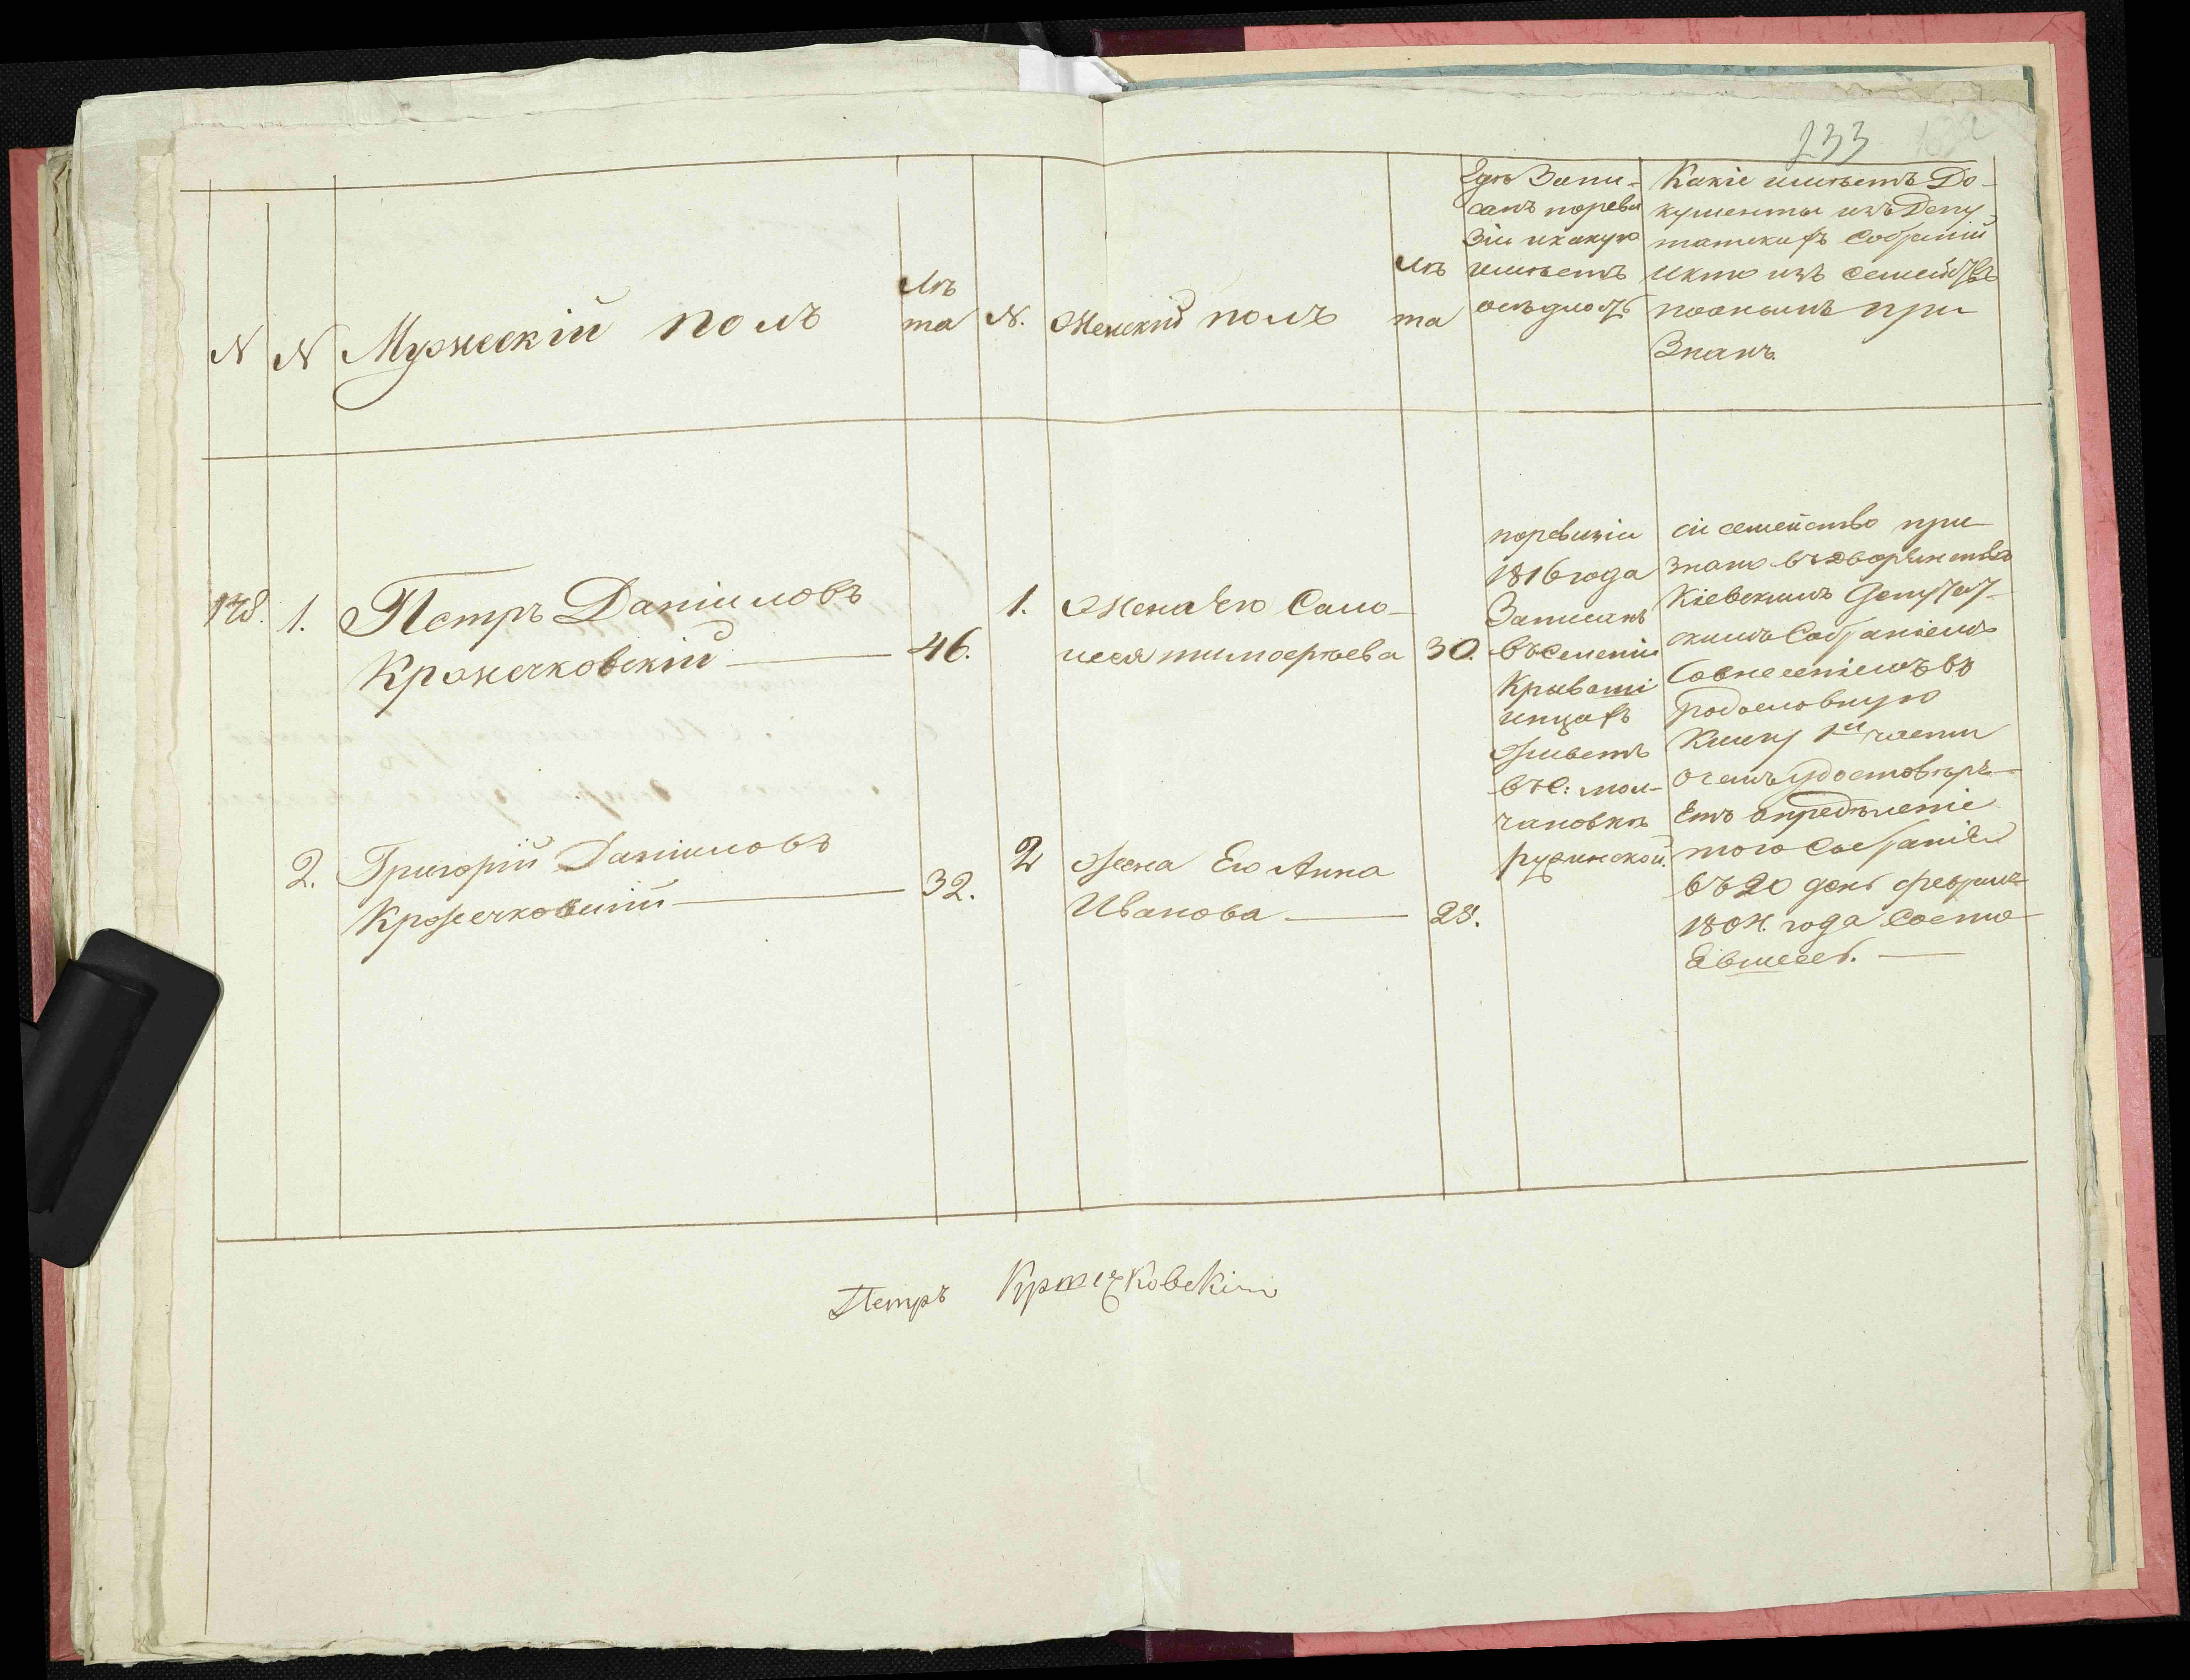 233
N
N
Мужескій полъ
лѣ
та
N.
Женскій полъ
лѣ
та
Гдѣ Запи-
санъ пореви
зіи икакую
имѣетъ
осѣдлость
Какіе имѣетъ До-
кументы изъ Депу
татскихъ Собраній
икто изъ семейства
поонымъ при
Знанъ
178.
1.
Петръ Даніиловъ
Кржечковскій
46.
1.
Жена Его Соло-
меея тимоерѣева
30.
поревизіи
1816 года
Записанъ
въселеніи
Кривоши
инцахъ
Живетъ
въ С: мол-
чановкѣ
ружинской.
сіе семейство при-
знано въдворянство
Кіевскимъ Депутат-
скимъ Собраніемъ
Совнесеніемъ въ
родословную
Книгу 1й части
очемъ удостовѣря-
Етъ опредѣленіе
того Собранія
въ 20 день февраля
180. года Состо-
Евшееся.
2.
Григорій Даніиловъ
Кржечковскій
32.
2
Жена Его Анна
Иванова
28.
Петръ Кржечковскій